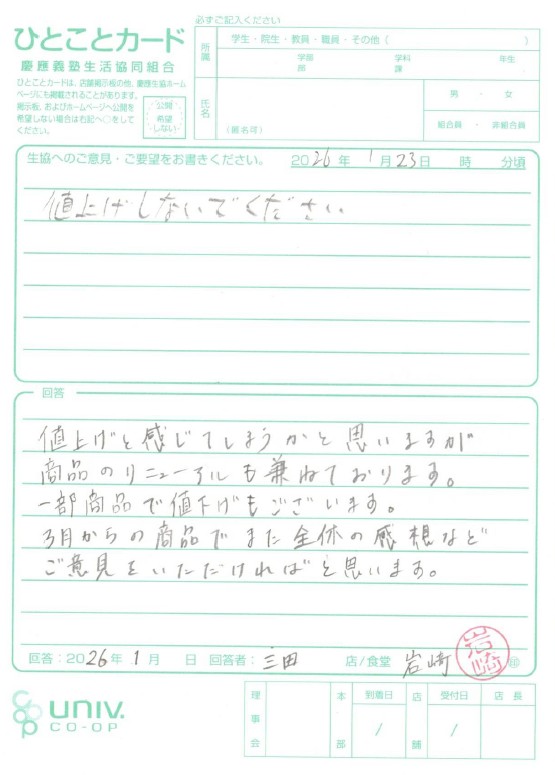 ひとことカード
慶應義塾生活協同組合
ひとことカードは、店議掲示板の他、慶應生協ホームページにも掲載されることがあります。
掲示板、およびホームページへ公開を希望しない場合は右記へ○をしてください。
公開希望しない
必ずご記入ください
所属
学生・院生・教員・職員・その他( )
学部 学科 年生
部 課
氏名
(匿名可)
男・女
組合員・非組合員
生協へのご意見・ご要望をお書きください。 2026年 1月23日 時 分頃
値上げしないでください
回答
値上げと感じてしまうかと思いますが
商品のリニューアルも兼ねております。
一部商品で値下げもございます。
3月からの商品でまた全体の感想など
ご意見をいただければと思います。
回答:2026年 1月 日 回答者: 三田 店/食堂 岩崎 印
岩崎
UNIV.
CO-OP
理事会
本部
到着日
/
店舗
受付日
/
店長